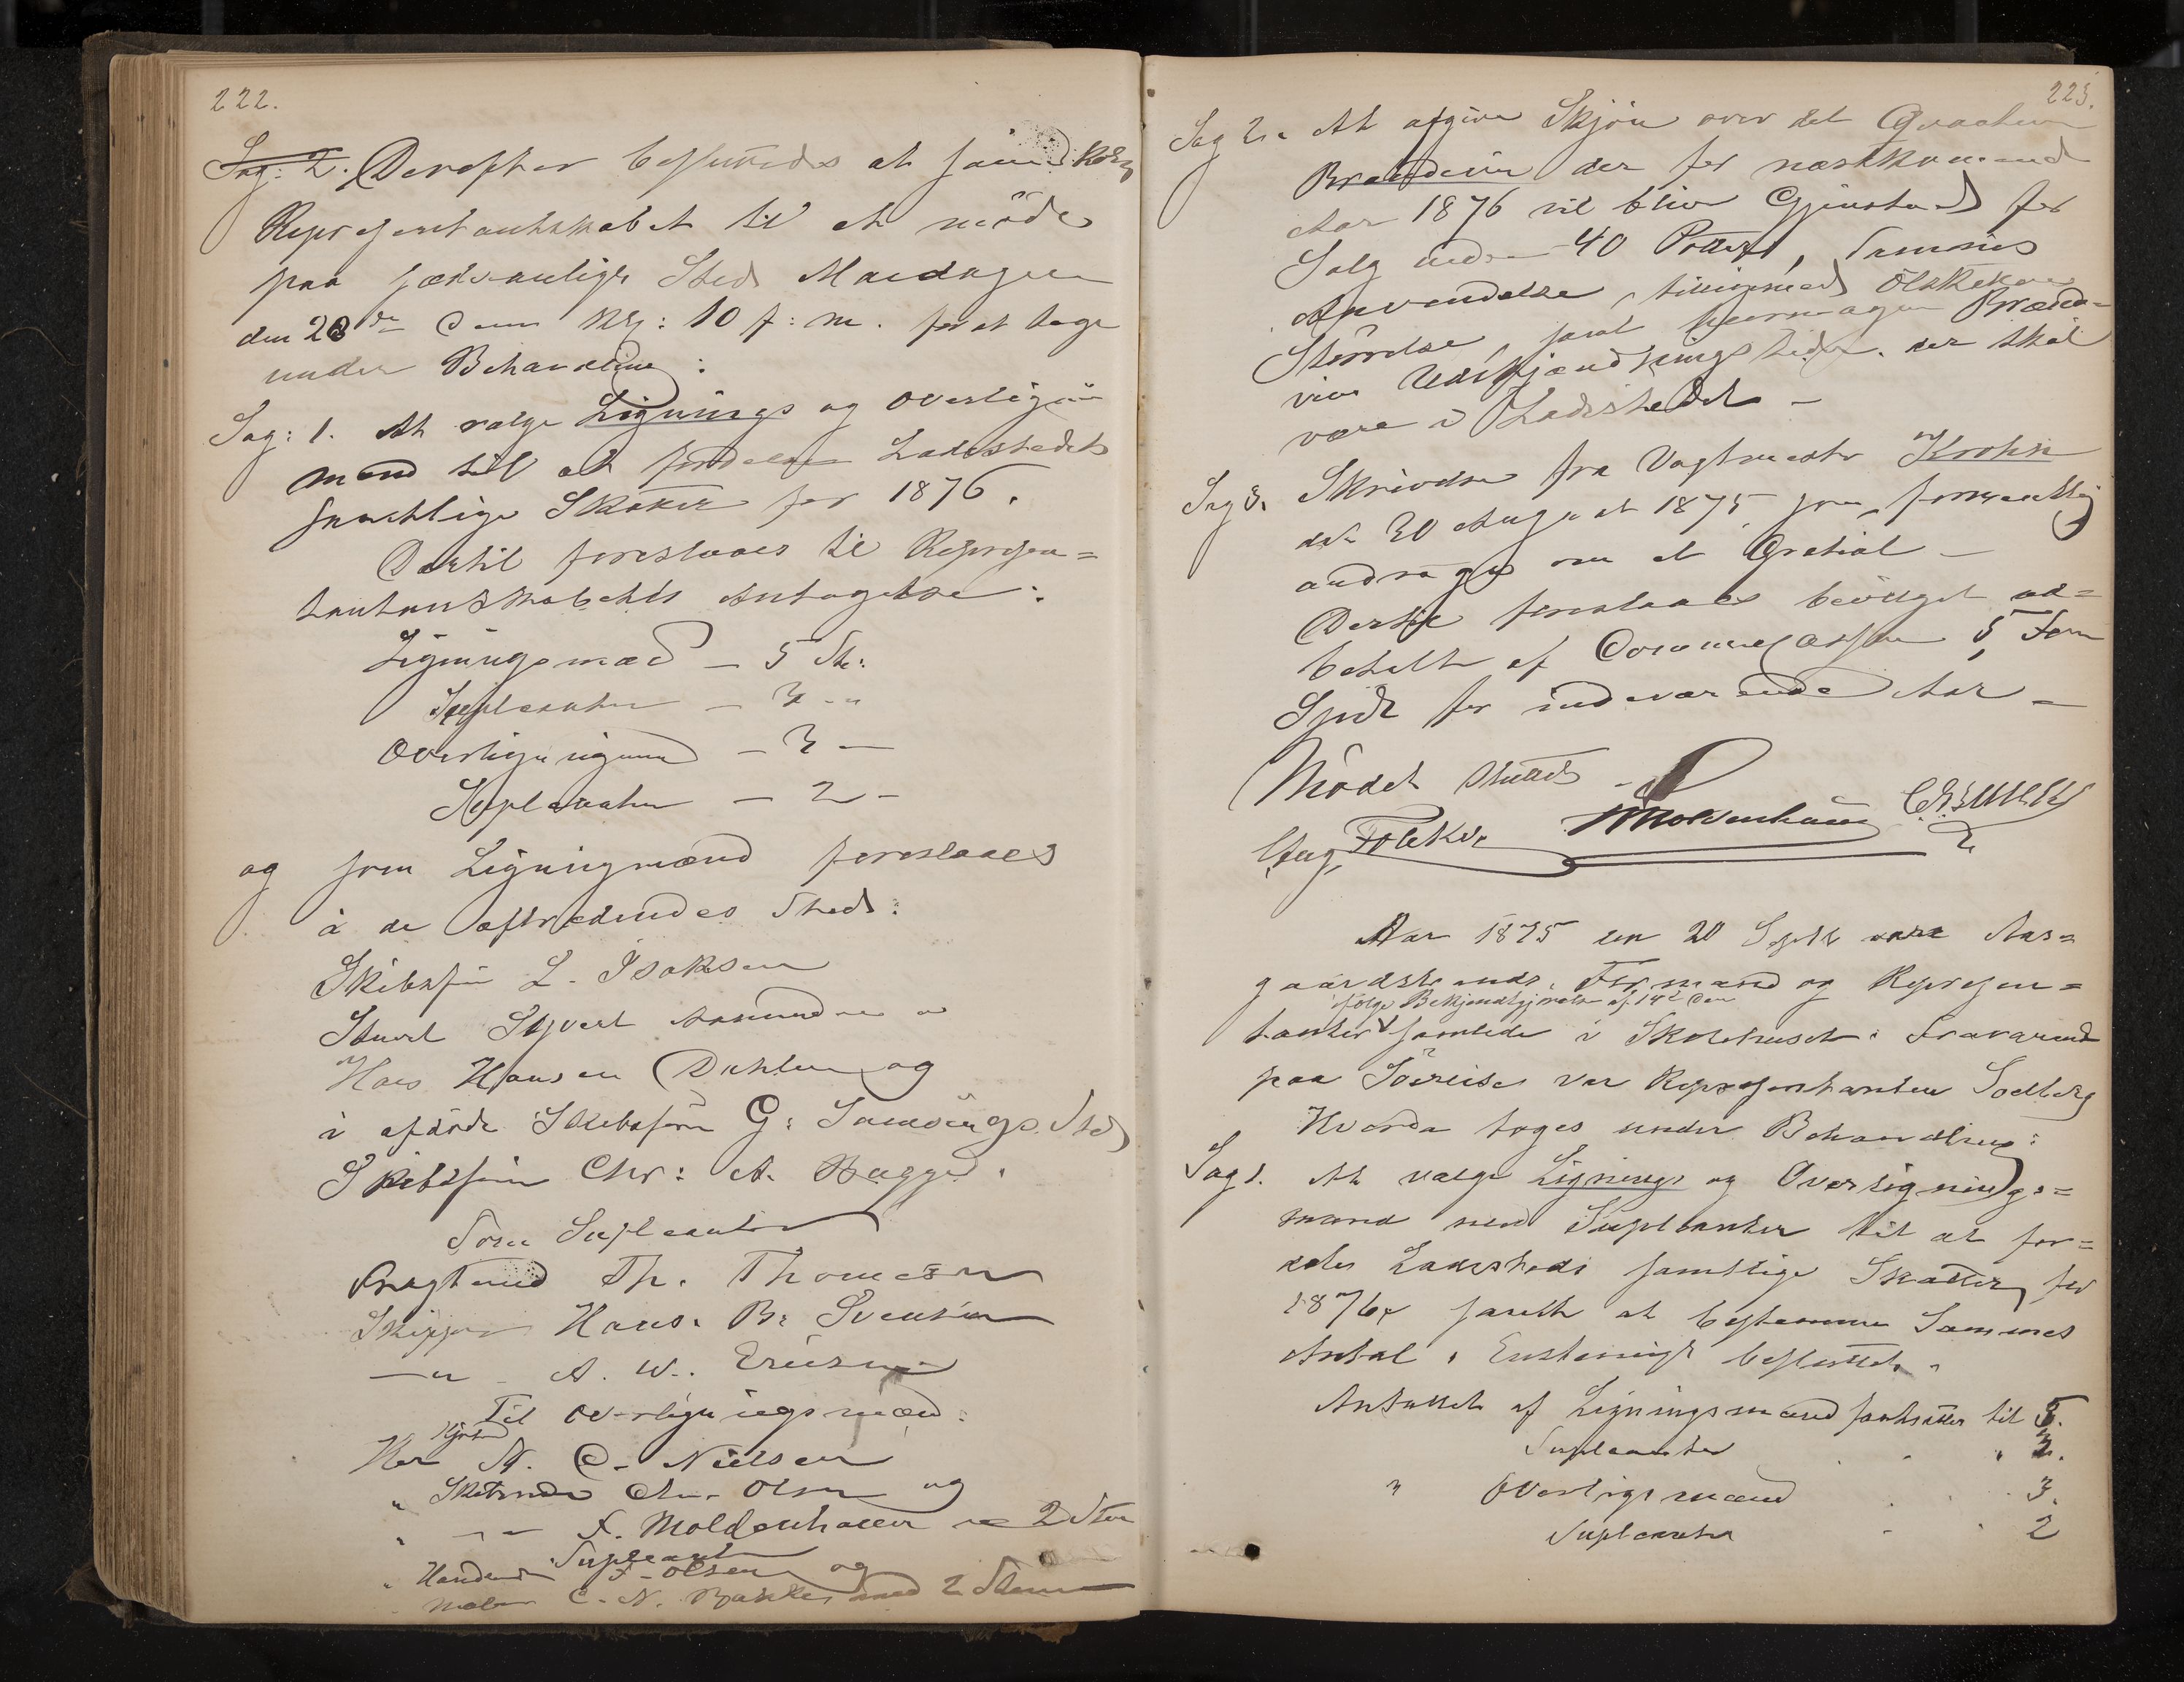 222.
Sag: 2. Derefter besluttedes at
Representantskabet til et möde
paa sædvanlige Sted Mandagen
den 20de Dennes Kl: 10 f:m. for at tage
under Behandling:
Sag: 1. At valge Lignings og Overlignings
mænd til at fordele Ladestedets
samtlige Skatter for 1876.
Dertil foreslaaes til Represen=
tantantskabethts Antagelse:
Ligningsmænd – 5 St:
Supleanter – 3 – "
Overligningsmænd – 3 –
Supleanter – 2 –
og som Ligningmænd foreslaaes
i de aftrædendes Sted:
Skibsför L. Isaksen
Sivert Aanundsen
Hans Hansen Dahlen og
i afdöde Skibsförer G: Sted
Skibsförer Chr: A. Bagge.
Som Supleanter
Th. Thomesen
Skipper Hans. B: Svensen
– " – A. W. Ericsen
Til Overligningsmænd:
Herr N. C. Nielsen
" Chr. Olsen og
" – " – A. Moldenhauer 2 Stem
Supleanter
" F. Olsen og
C. N. Bakke med 2 Stemmer
223.
Sag 2. At afgive Skjön over det Qvantum
Brændeviin der for næstkommende
Aar 1876 vil blive Gjenstand for
Salg under 40 Potter, Sammes
Anvendelse, tilligemed
Störrelse, samt Brænde=
viins der skal
være i Ladestedet –
Sag 3. Skrivelse fra Vagtmester Krohn
dat 30 August 1875 som
andrages om et Gratial –
Dertil foreslaaes bevilget ud=
betalt af Communecassen 5, Fem
Spdr for indeværende Aar –
Mödet sluttet –
Aug. Foleker Moldenhauer
Aar 1875 den 20 Septb vare Aas=
gaardstrands Formænd og Represen=
ifölge Bekjendtgjörelse af 14de Dens
tanter samlede i Skolehuset. Fraværende
paa Söereise var Representanten Sollberg
Hvorda toges under Behandling:
Sag 1. At valge Lignings og Overlignings=
mænd med Supleanter til at for=
dele Ladestedets samtlige Skatter for
1876, samth at bestemme Sammes
Antal. Enstemigt besluttet.
Antallet af Ligningsmænd fastsættes til 5.
Supleanter " 3.
" Overligsmænd 3.
Supleanter 2